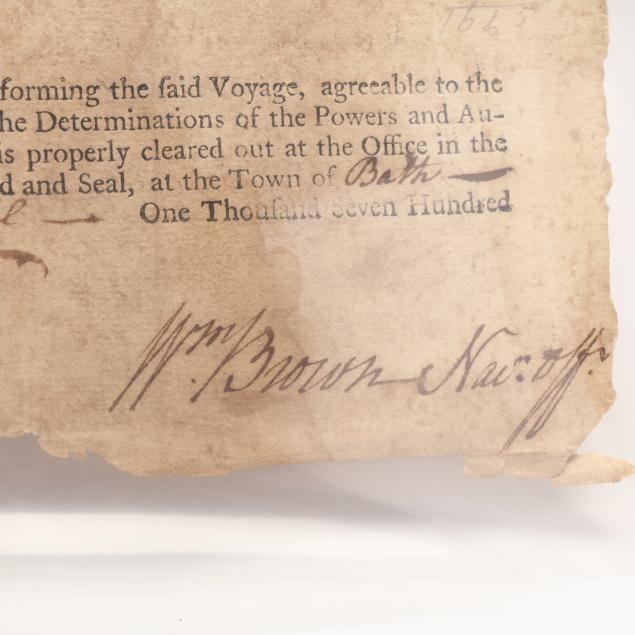 1665
forming the ſaid Voyage, agreeable to the
he Determinations of the Powers and Au-
is properly cleared out at the Office in the
d and Seal, at the Town of Bath —
e — One Thouſand Seven Hundred
Wm. Brown Nav: off.r